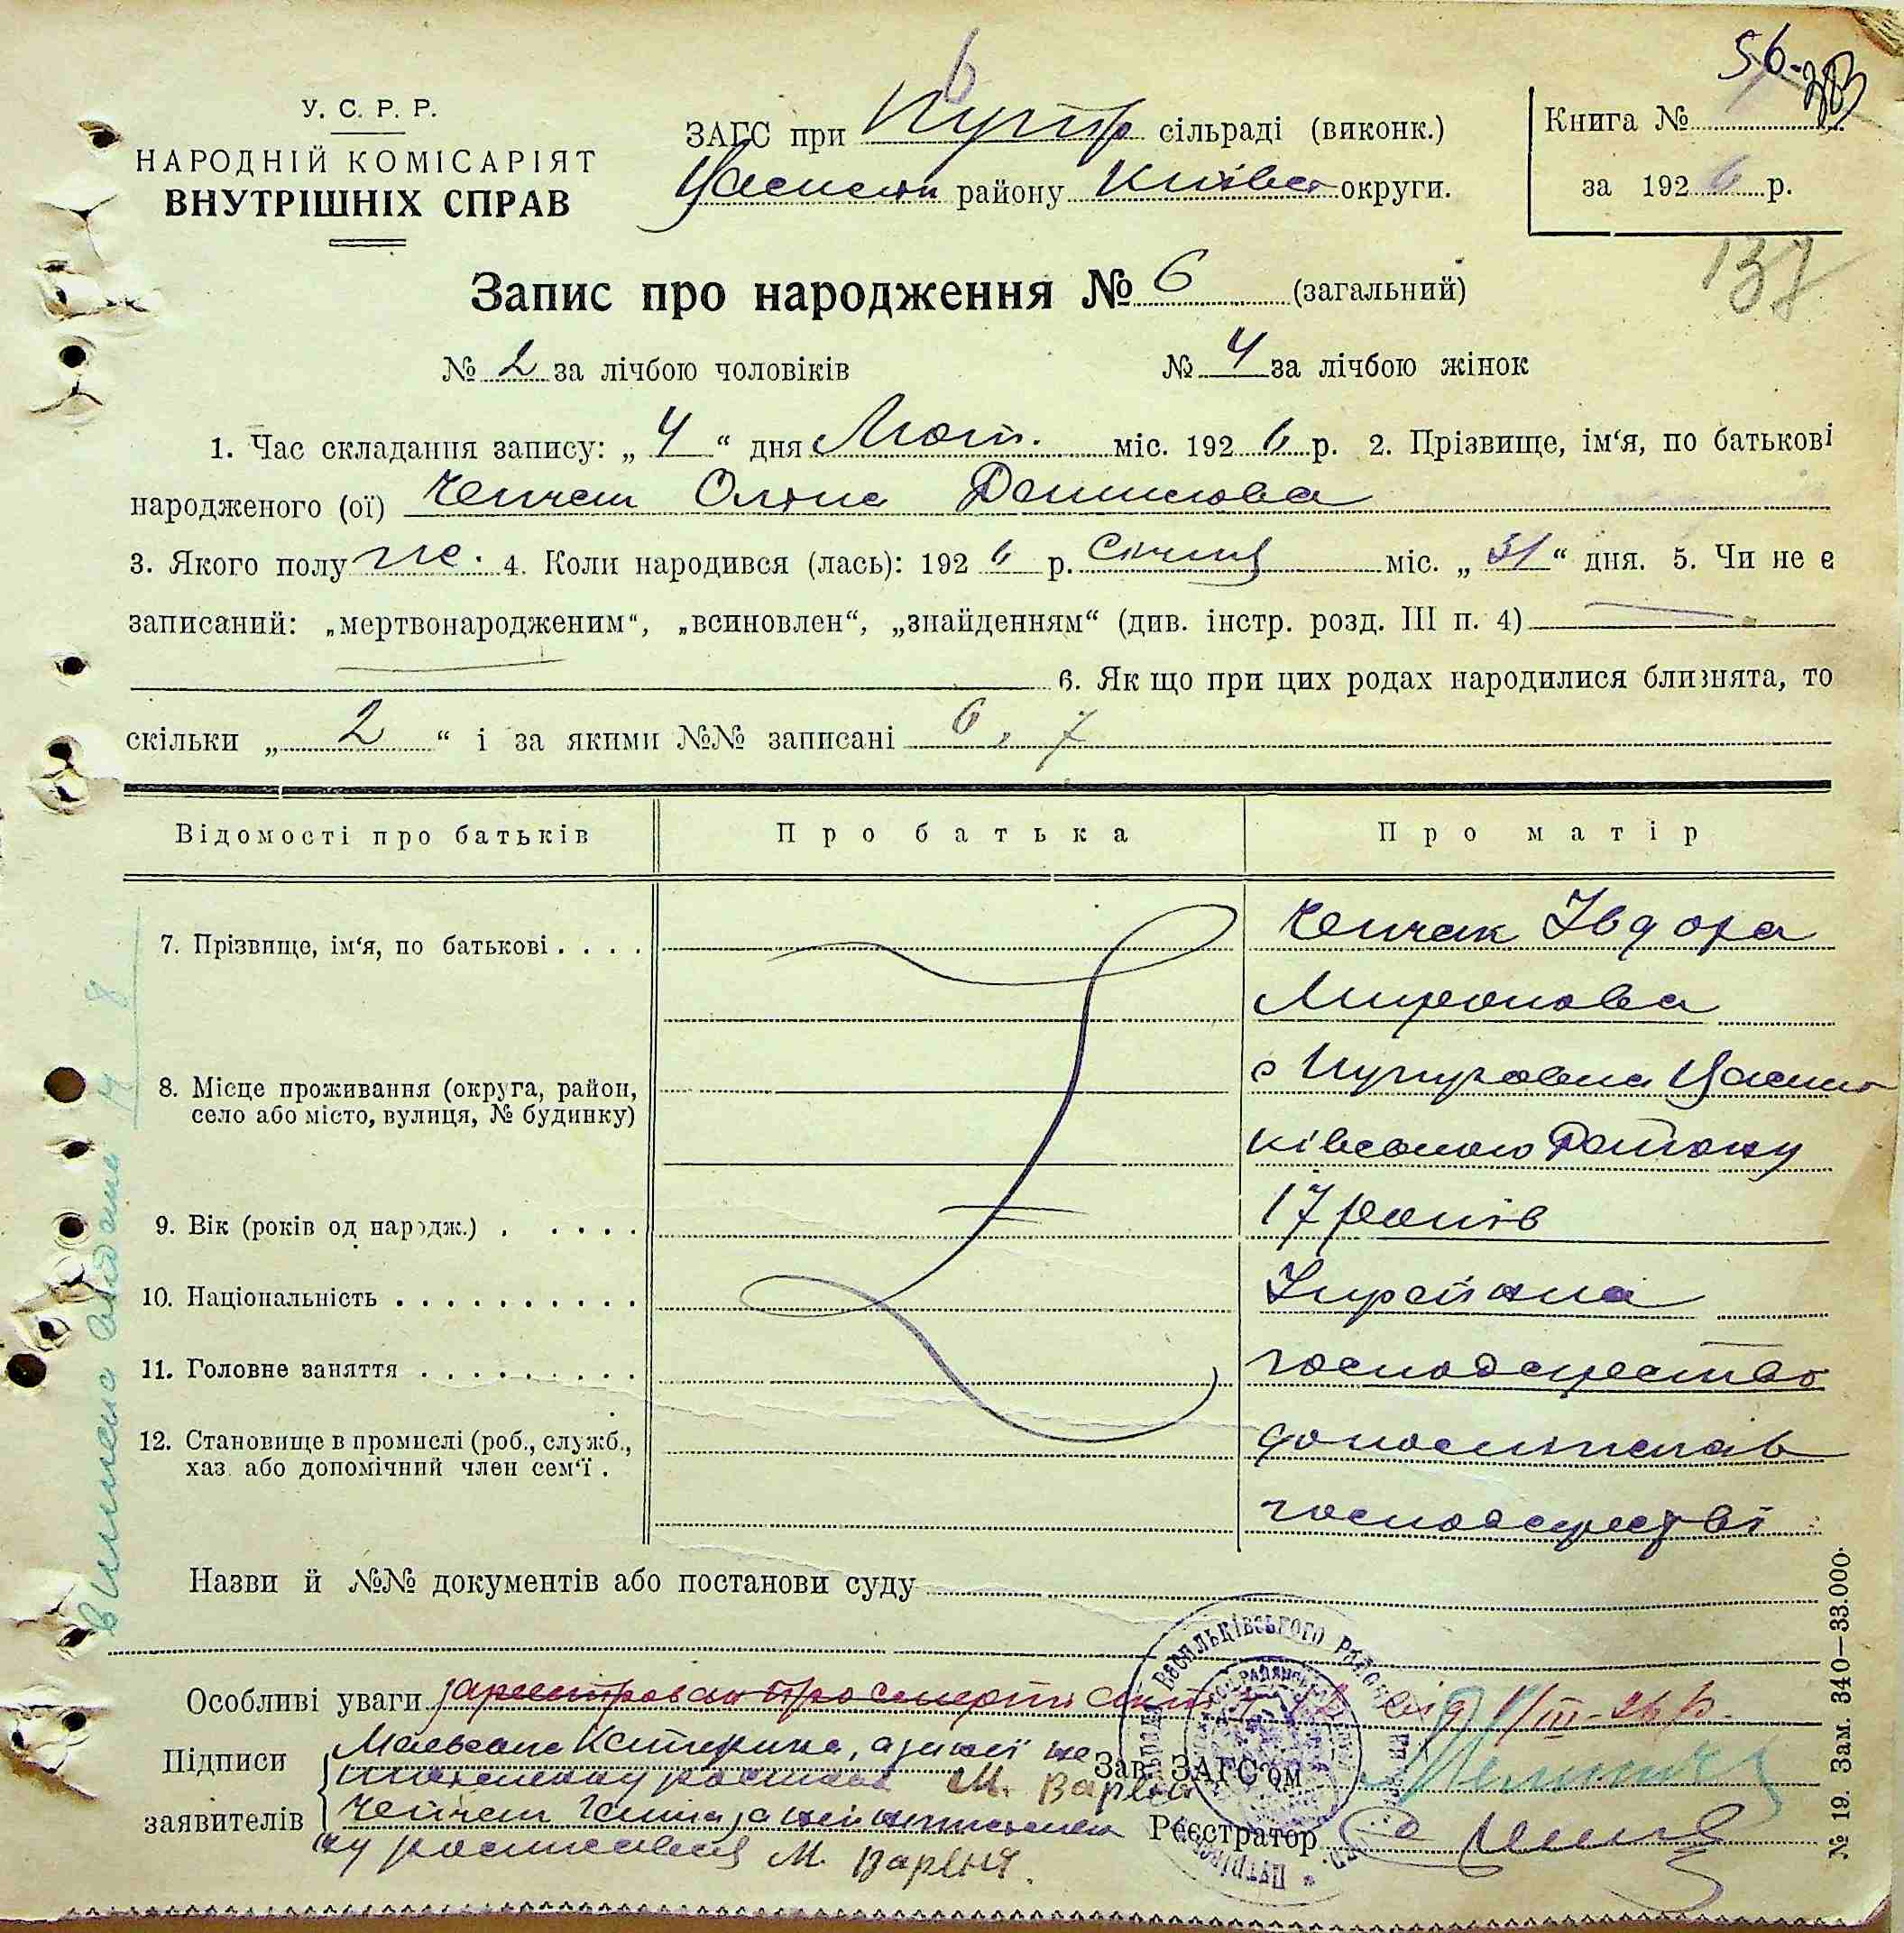 56.
У. С. Р. Р.
НАРОДНІЙ КОМІСАРІЯТ
ВНУТРІШНІХ СПРАВ
ЗАГС при Путр сільраді (виконк.)
району Київс округи.
Книга №
за 1926 р.
137
Запис про народження № 6 (загальний)
№ 2 за лічбою чоловіків № 4 за лічбою жінок
1. Час складання запису: „ 4 “ дня Лют. міс. 1926 р. 2. Прізвище, ім‘я, по батькові
народженого (ої) Оляна Данилова
3. Якого полу жс. 4. Коли народився (лась): 1926 р. Січня міс. „ 31 “ дня. 5. Чи не є
записаний: „мертвонародженим“, „всиновлен“, „знайденням“ (див. інстр. розд. III п. 4)
6. Як що при цих родах народилися близнята, то
скільки „ 2 “ і за якими №№ записані 6 і 7
Відомості про батьків Про батька Про матір
7. Прізвище, ім‘я, по батькові . . . . Чепчак Івдора
Миронова
8. Місце проживання (округа, район,
село або місто, вулиця, № будинку)
с Путровка Василь
ківського Району
9. Вік (років од народж.) . . . . . 17 років
10. Національність . . . . . . . . . . Українка
11. Головне заняття . . . . . . . . . господарство
12. Становище в промислі (роб., служб.,
хаз. або допомічний член сем‘ї .
господарстві
Назви й №№ документів або постанови суду
Особливі уваги зареєстрован про смерть від 1/III-26 р.
Підписи
заявителів
Катерина, а за неї не
М. Варвон
Ганна за неї
М. Варвон.
Зав. ЗАГС‘ом
Реєстратор
ВАСИЛЬКІВСЬКОГО РАЙОНУ
№ 19. Зам. 340—33.000.